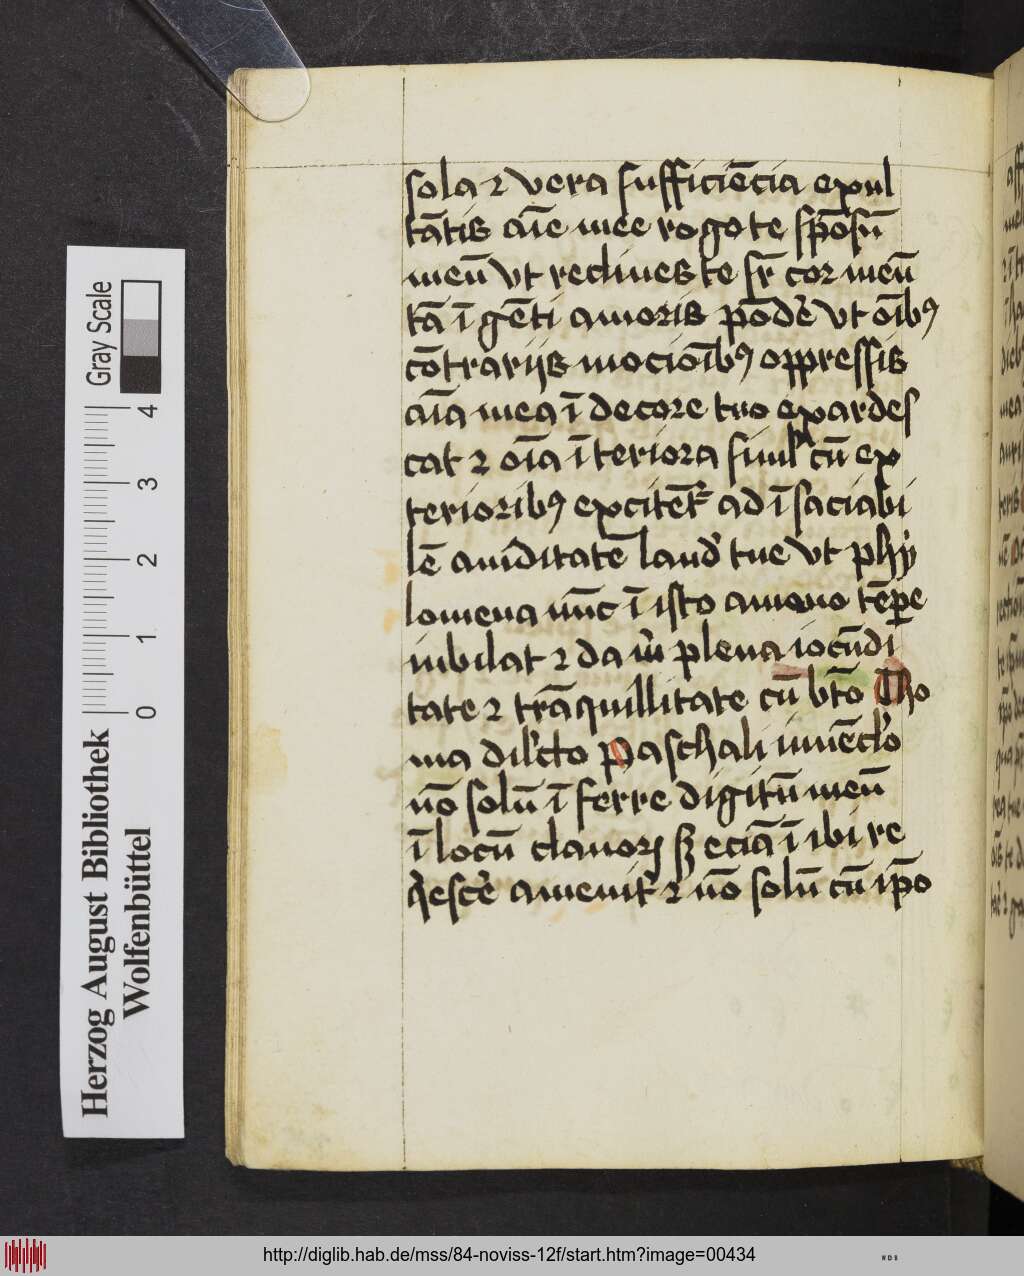 sola ⁊ vera sufficiēcia exul
tātis aīe mee rogo te spōsū
meū vt reclines te sr̄ cor meū
tā ī gēti amoris pōdē vt oībꝰ
cōtrariis mocioībꝰ oppressis
aīa mea ī decore tuo exardes
cat ⁊ oīa īteriora simlʳ cū ex
terioribꝰ excitēt᷑ ad īsaciabi
lē auiditatē laud̓ tue vt phẏ
lomena nūc ī isto amono tēꝑe
iubilat ⁊ da m̄ plena iocūdi
tate ⁊ trāquillitate cū bt̄o Tho
ma dilc̄to Paschali iuuēcl̓o
nō solū īferre digitū meū
ī locū clauoꝝ sꝫ eciā ī ibi re
q̓escē̓ amenit᷑ ⁊ nō solū cū ip̄o
Herzog August Bibliothek
Wolfenbüttel
0 1 2 3 4
Gray Scale
http://diglib.hab.de/mss/84-noviss-12f/start.htm?image=00434